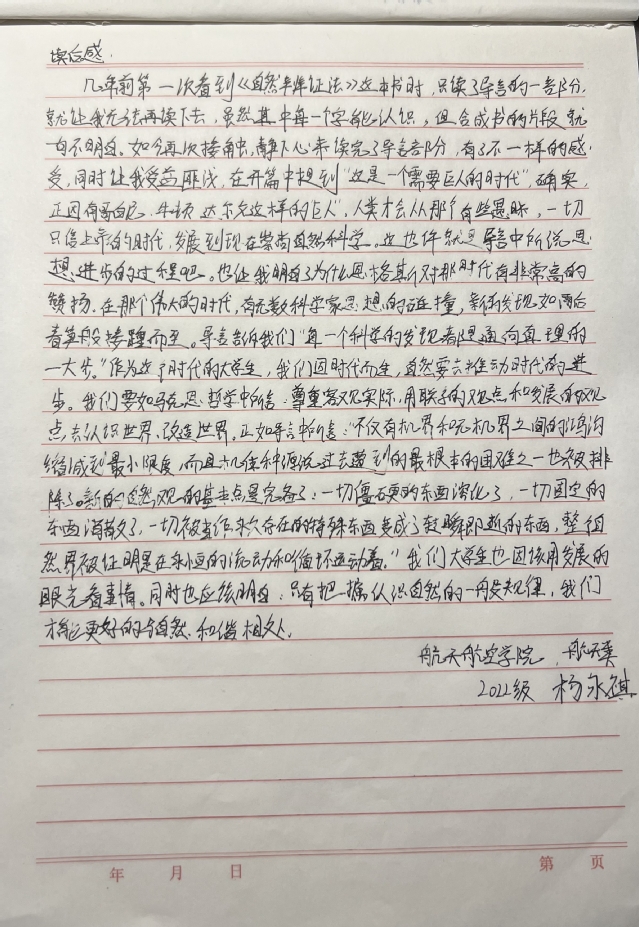 读后感.
几年前第一次看到《自然辩证法》这本书时，只读了导言的一部分，
就让我无法再读下去，虽然其中每一个字能认识，但合成书的片段就
不明白。如今再次接触，静下心来读完了导言部分，有了不一样的感
受，同时让我受益匪浅，在开篇中提到"这是一个需要巨人的时代"，确实，
正因有哥白尼、牛顿、达尔文这样的"巨人"，人类才会从那个有些愚昧，一切
只信上帝的时代，发展到现在崇尚自然科学。这也许就是导言中所说思
想进步的过程吧。也让我明白了为什么恩格斯对那时代有非常高的
赞扬。在那个伟大的时代，有无数科学家思想的碰撞，新的发现如雨后
春笋般接踵而至。导言告诉我们"每一个科学的发现都是通向真理的
一大步。"作为这个时代的大学生，我们因时代而生，自然要去推动时代的进
步。我们要如马克思哲学中所言：尊重客观实际，用联系的观点和发展的观
点去认识世界、改造世界。正如导言中所言："不仅有机界和无机界之间的鸿沟
缩减到最小限度，而且机体种源说过去遭到的最根本的困难之一也被排
除了。新的自然观的基本点是完备了：一切僵硬的东西溶化了，一切固定的
东西消散了，一切被当作永久存在的特殊东西变成了转瞬即逝的东西，整个自
然界被证明是在永恒的流动和循环运动着。"我们大学生也因该用发展的
眼光看事情。同时也应该明白：只有把握认识自然的一般规律，我们
才能更好的与自然和谐相处。
航天航空学院
2022级 杨永祺
年 月 日 第 页